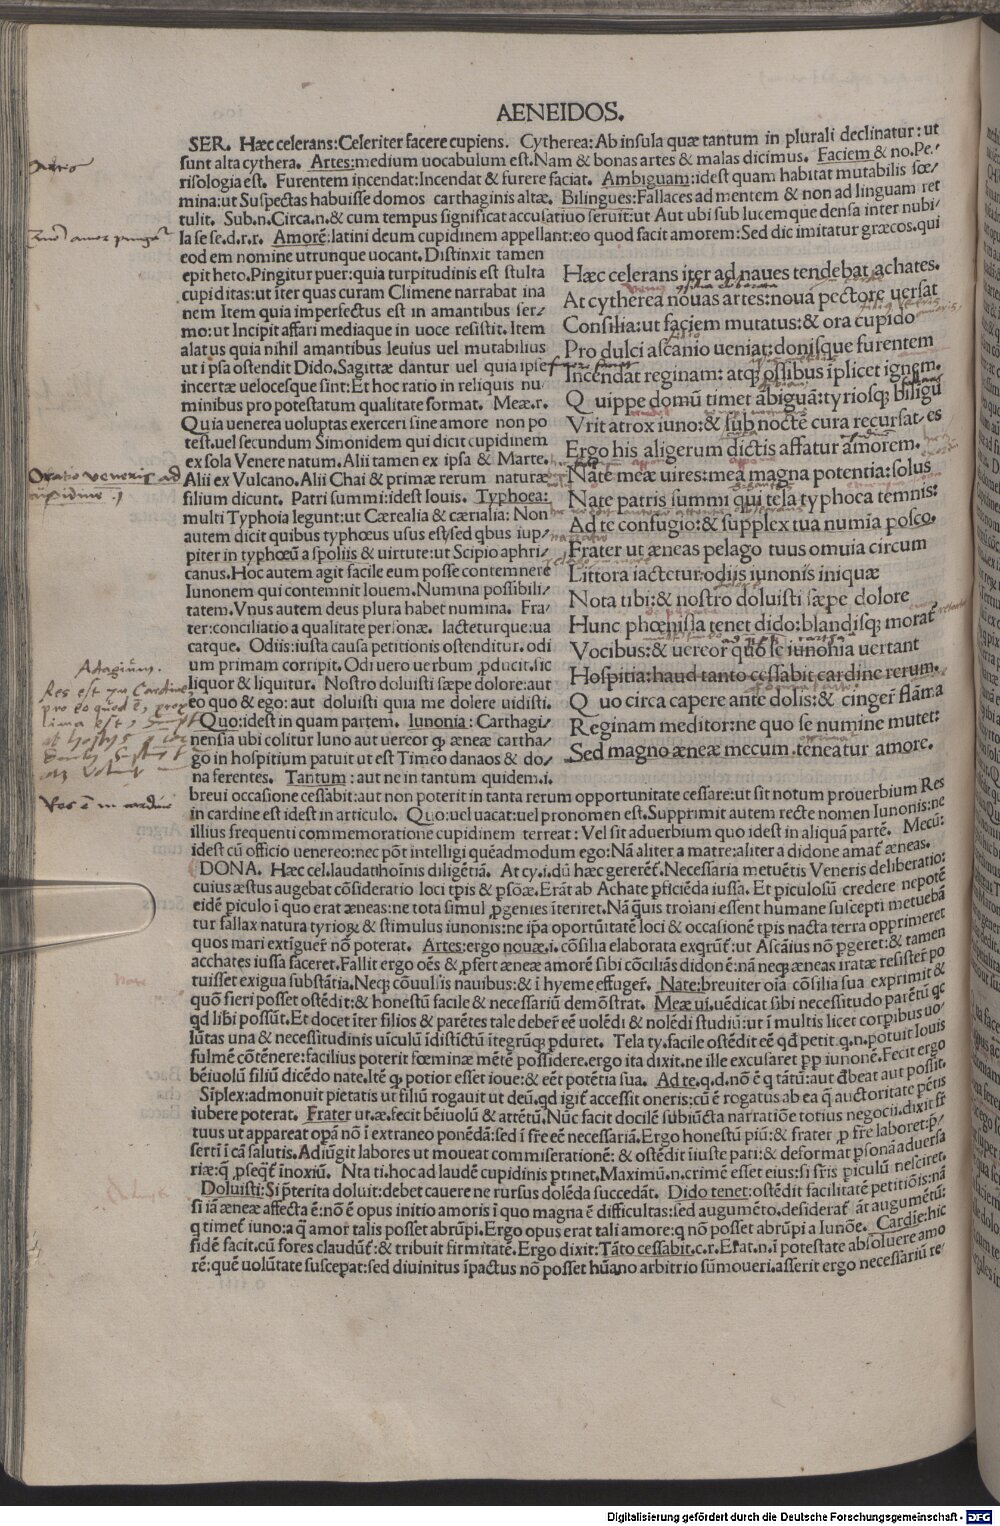 AENEIDOS.
SER. Hæc celerans:Celeriter facere cupiens. Cytherea:Ab insula quæ tantum in plurali declinatur:ut
sunt alta cythera. Artes:medium uocabulum est.Nam & bonas artes & malas dicimus. Faciem & no.Pe/
risologia est. Furentem incendat:Incendat & furere faciat. Ambiguam:idest quam habitat mutabilis fœ/
mina:ut Suspectas habuisse domos carthaginis altæ. Bilingues:Fallaces ad mentem & non ad linguam ret
tulit. Sub.n.Circa.n.& cum tempus significat accusatiuo seruit:ut Aut ubi sub lucem que densa inter nubi/
la se se.d.r.r. Amorē:latini deum cupidinem appellant:eo quod facit amorem:Sed dic imitatur græcos.qui
eod em nomine utrunque uocant.Distinxit tamen
epit heto.Pingitur puer:quia turpitudinis est stulta
cupiditas:ut īter quas curam Climene narrabat ina
nem Item quia imperfectus est in amantibus ser/
mo:ut Incipit affari mediaque in uoce resistit.Item
alatus quia nihil amantibus leuius uel mutabilius
ut i psa ostendit Dido.Sagittæ dantur uel quia ipse
incertæ uelocesque sint:Et hoc ratio in reliquis nu/
minibus pro potestatum qualitate format. Meæ.r.
Quia uenerea uoluptas exerceri sine amore non po
test.uel secundum Simonidem qui dicit cupidinem
ex sola Venere natum.Alii tamen ex ipsa & Marte.
Alii ex Vulcano.Alii Chai & primæ rerum naturæ
filium dicunt. Patri summi:idest Iouis. Typhoea:
multi Typhoia legunt:ut Cærealia & cærialia: Non
autem dicit quibus typhœus usus est/sed qbus iup/
piter in typhœū a spoliis & uirtute:ut Scipio aphri/
canus.Hoc autem agit facile eum posse contemnere
Iunonem qui contemnit Iouem.Numina possibili/
tatem.Vnus autem deus plura habet numina. Fra/
ter:conciliatio a qualitate personæ. Iacteturque:ua
catque. Odiis:iusta causa petitionis ostenditur.odi
um primam corripit.Odi uero uerbum ꝓducit.sic
liquor & liquitur. Nostro doluisti sæpe dolore:aut
eo quo & ego: aut doluisti quia me dolere uidisti.
Quo:idest in quam partem. Iunonia: Carthagi/
nensia ubi colitur Iuno aut uereor ꝙ æneæ cartha/
go in hospitium patuit ut est Timeo danaos & do/
na ferentes. Tantum : aut ne in tantum quidem.i.
Hæc celerans iter ad naues tendebat achates.
At cytherea nouas artes:nouā pectore uersat
Consilia:ut faciem mutatus:& ora cupido
Pro dulci ascanio ueniat:donisque furentem
Incendat reginam: atq; ossibus īplicet ignem.
Q uippe domū timet ābiguā:tyriosq; biligū es
Vrit atrox iuno:& sub noctē cura recursat.
Ergo his aligerum dictis affatur amorem.
Nate meæ uires:mea magna potentia:solus
Nate patris summi qui tela typhoca temnis:
Ad te confugio:& supplex tua numīa posco.
Frater ut æneas pelago tuus omuia circum
Littora iactetur.odiis iunonis iniquæ
Nota tibi:& nostro doluisti sæpe dolore
Hunc phœnissa tenet dido:blandisq; morat
Vocibus:& uereor quo se iunonia uertant
Hospitia:haud tanto cessabit cardine rerum.
Q uo circa capere ante dolis:& cingeř flāma
Reginam meditor:ne quo se numine mutet:
Sed magno æneæ mecum teneatur amore.
breui occasione cessabit:aut non poterit in tanta rerum opportunitate cessare:ut sit notum prouerbium Res
in cardine est idest in articulo. Quo:uel uacat:uel pronomen est.Supprimit autem recte nomen Iunonis:ne
illius frequenti commemoratione cupidinem terreat: Vel sit aduerbium quo idest in aliquā partē. Mecū:
idest cū officio uenereo:nec pōt intelligi quēadmodum ego:Nā aliter a matre:aliter a didone amat æneas.
DONA. Hæc cel.laudat hoīnis diligētiā. At cy.i.dū hæc gererēt.Necessaria metuētis Veneris deliberatio:
cuius æstus augebat cōsideratio loci tpis & psōæ.Erāt ab Achate pficiēda iussa. Et piculosū credere nepotē
eidē piculo ī quo erat æneas:ne tota simul ꝓgenies īteriret.Nā quis troiani essent humane suscepti metuebā
tur fallax natura tyrioꝝ & stimulus iunonis:ne īpa oportūitatē loci & occasionē tpis nacta terra opprimeret
quos mari extiguere nō poterat. Artes:ergo nouæ.i.cōsilia elaborata exqrūt:ut Ascāius nō pgeret:& tamen
acchates iussa faceret.Fallit ergo oēs & pfert æneæ amorē sibi cōciliās didonē:nā neq; æneas iratæ resisteř po
tuisset exigua substātia.Neq; cōuulsis nauibus:& ī hyeme effugeř. Nate:breuiter oīa cōsilia sua exprimit &
quō fieri posset ostēdit:& honestū facile & necessariū demōstrat. Meæ ui.uēdicat sibi necessitudo parētū qc
qd libi possūt.Et docet īter filios & parētes tale debeř eē uolēdi & nolēdi studiū:ut ī multis licet corpibus uo/
lūtas una & necessitudinis uīculū īdistīctū itegrūq; pduret. Tela ty.facile ostēdit eē qd petit q.n.potuit Iouis
fulmē cōtēnere:facilius poterit fœminæ mētē possidere.ergo ita dixit.ne ille excusaret pp iunonē.Fecit ergo
bēiuolū filiū dicēdo nate.Itē ꝙ potior esset ioue:& eēt potētia sua. Ad te.q.d.nō ē q tātū:aut dbeat aut possit.
Sīplex:admonuit pietatis ut filiū rogauit ut deū.qd igit accessit oneris:cū ē rogatus ab ea q auctoritate petis
iubere poterat. Frater ut.æ.fecit bēiuolū & attētū.Nūc facit docilē subiūcta narratiōe totius negocii.dixit fr
tuus ut appareat opā nō ī extraneo ponēdā:sed ī fře eē necessariā.Ergo honestū piū:& frater ꝓ fře laboret:p/
serti ī cā salutis.Adiūgit labores ut moueat commiserationē: & ostēdit iiuste pati:& deformat psonā aduersa
riæ:q ꝓseqt inoxiū. Nta ti.hoc ad laudē cupidinis ptinet.Maximū.n.crimē esset eius:si fris piculū nesciret.
Doluisti:Si pterita doluit:debet cauere ne rursus dolēda succedāt. Dido tenet:ostēdit facilitatē petitiōis:nā
si iā æneæ affecta ē:nō ē opus initio amoris ī quo magna ē difficultas:sed augumēto.desiderat āt augumētū:
q timet iuno:a q amor talis posset abrūpi.Ergo opus erat tali amore:q nō posset abrūpi a Iunōe. Cardie:hic
fidē facit.cū fores claudūt:& tribuit firmitatē.Ergo dixit:Tāto cessabit.c.r.Erat.n.ī potestate absoluere amo
rē:quē uolūtate suscepat:sed diuinitus īpactus nō posset hūano arbitrio sūmoueri.asserit ergo necessariū re/
Oratio veneris ad
cupidinē
Adagium.
Res est in Cardine
pro eo quod ē, prox
ima est,
Res ē in cardine
Digitalisierung gefördert durch die Deutsche Forschungsgemeinschaft - DFG